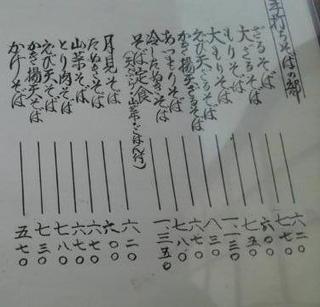 手打ちそばの郷
ざるそば 六二〇
大ざるそば 七七〇
もりそば 六〇〇
大もりそば 七五〇
えび天ざるそば 一、一三〇
かき揚天ざるそば 八三〇
あつもりそば 六七〇
冷したぬきそば 七八〇
そば定食 一、三五〇
月見そば 六二〇
たぬきそば 六〇〇
山菜そば 六七〇
とり肉そば 六七〇
えび天そば 七八〇
かき揚天そば 七三〇
かけそば 五七〇